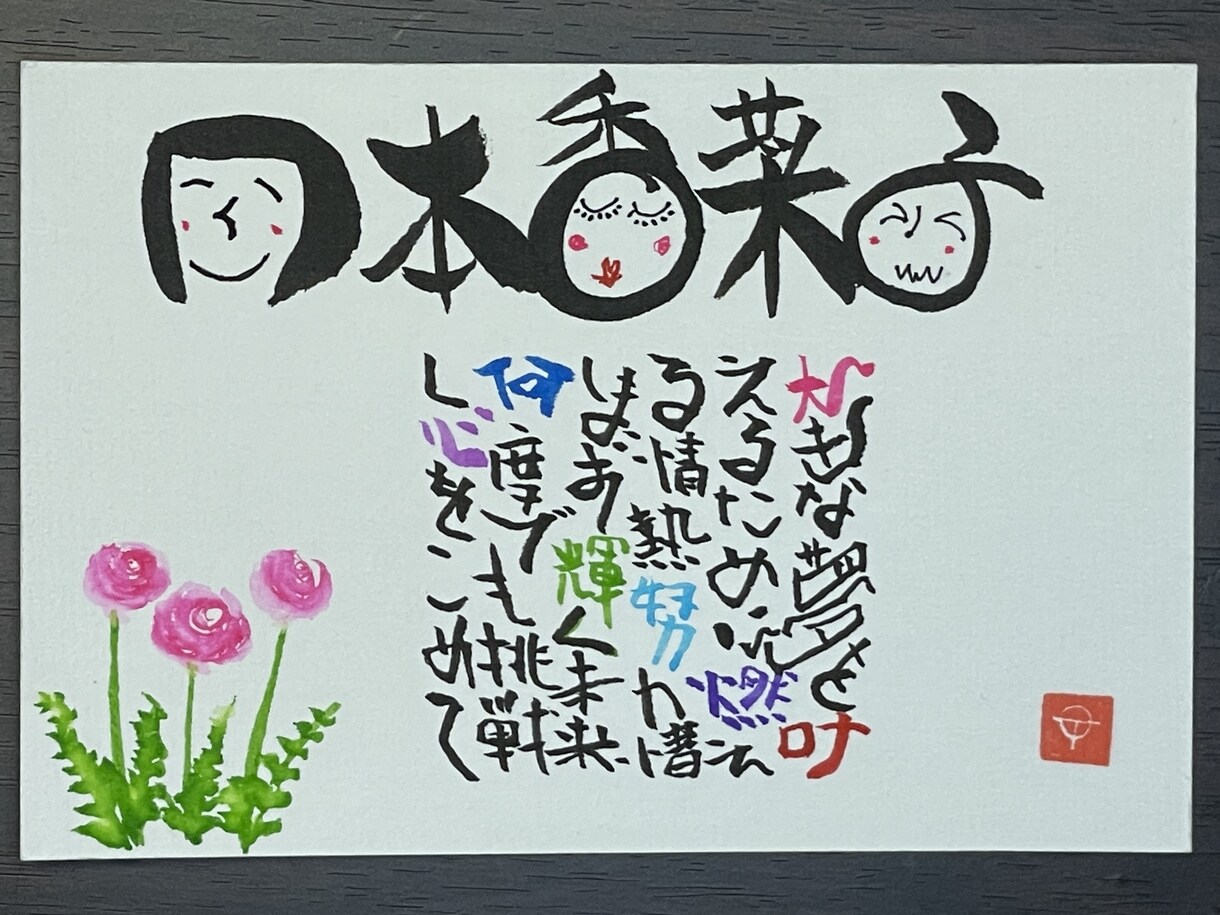 岡本香菜子
大きな夢を叶
えるために燃え
る情熱努力惜
しまず輝く未来
何度でも挑戦
し心をこめて